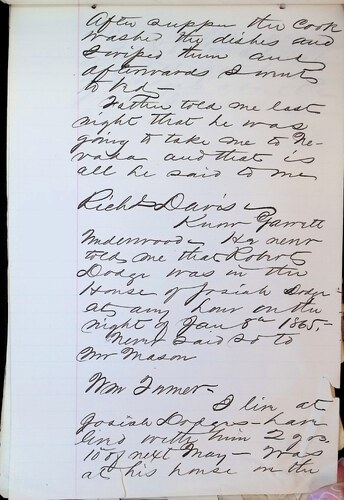 After supper the Cook
washed the dishes and
I wiped them and
afterwards I went
to bed –
Father told me last
night that he was
going to take me to Ne-
vada and that is
all he said to me
Richd Davis –
Know Garrett
Underwood – He never
told me that Robert
Dodge was in the
House of Josiah Dodge
at any hour on the
night of Jan 8th 1865, –
Never said so to
Mr Mason
Wm Turner –
I live at
Josiah Dodges – have
lived with him 2 yrs
15 of next May – Was
at his house on the